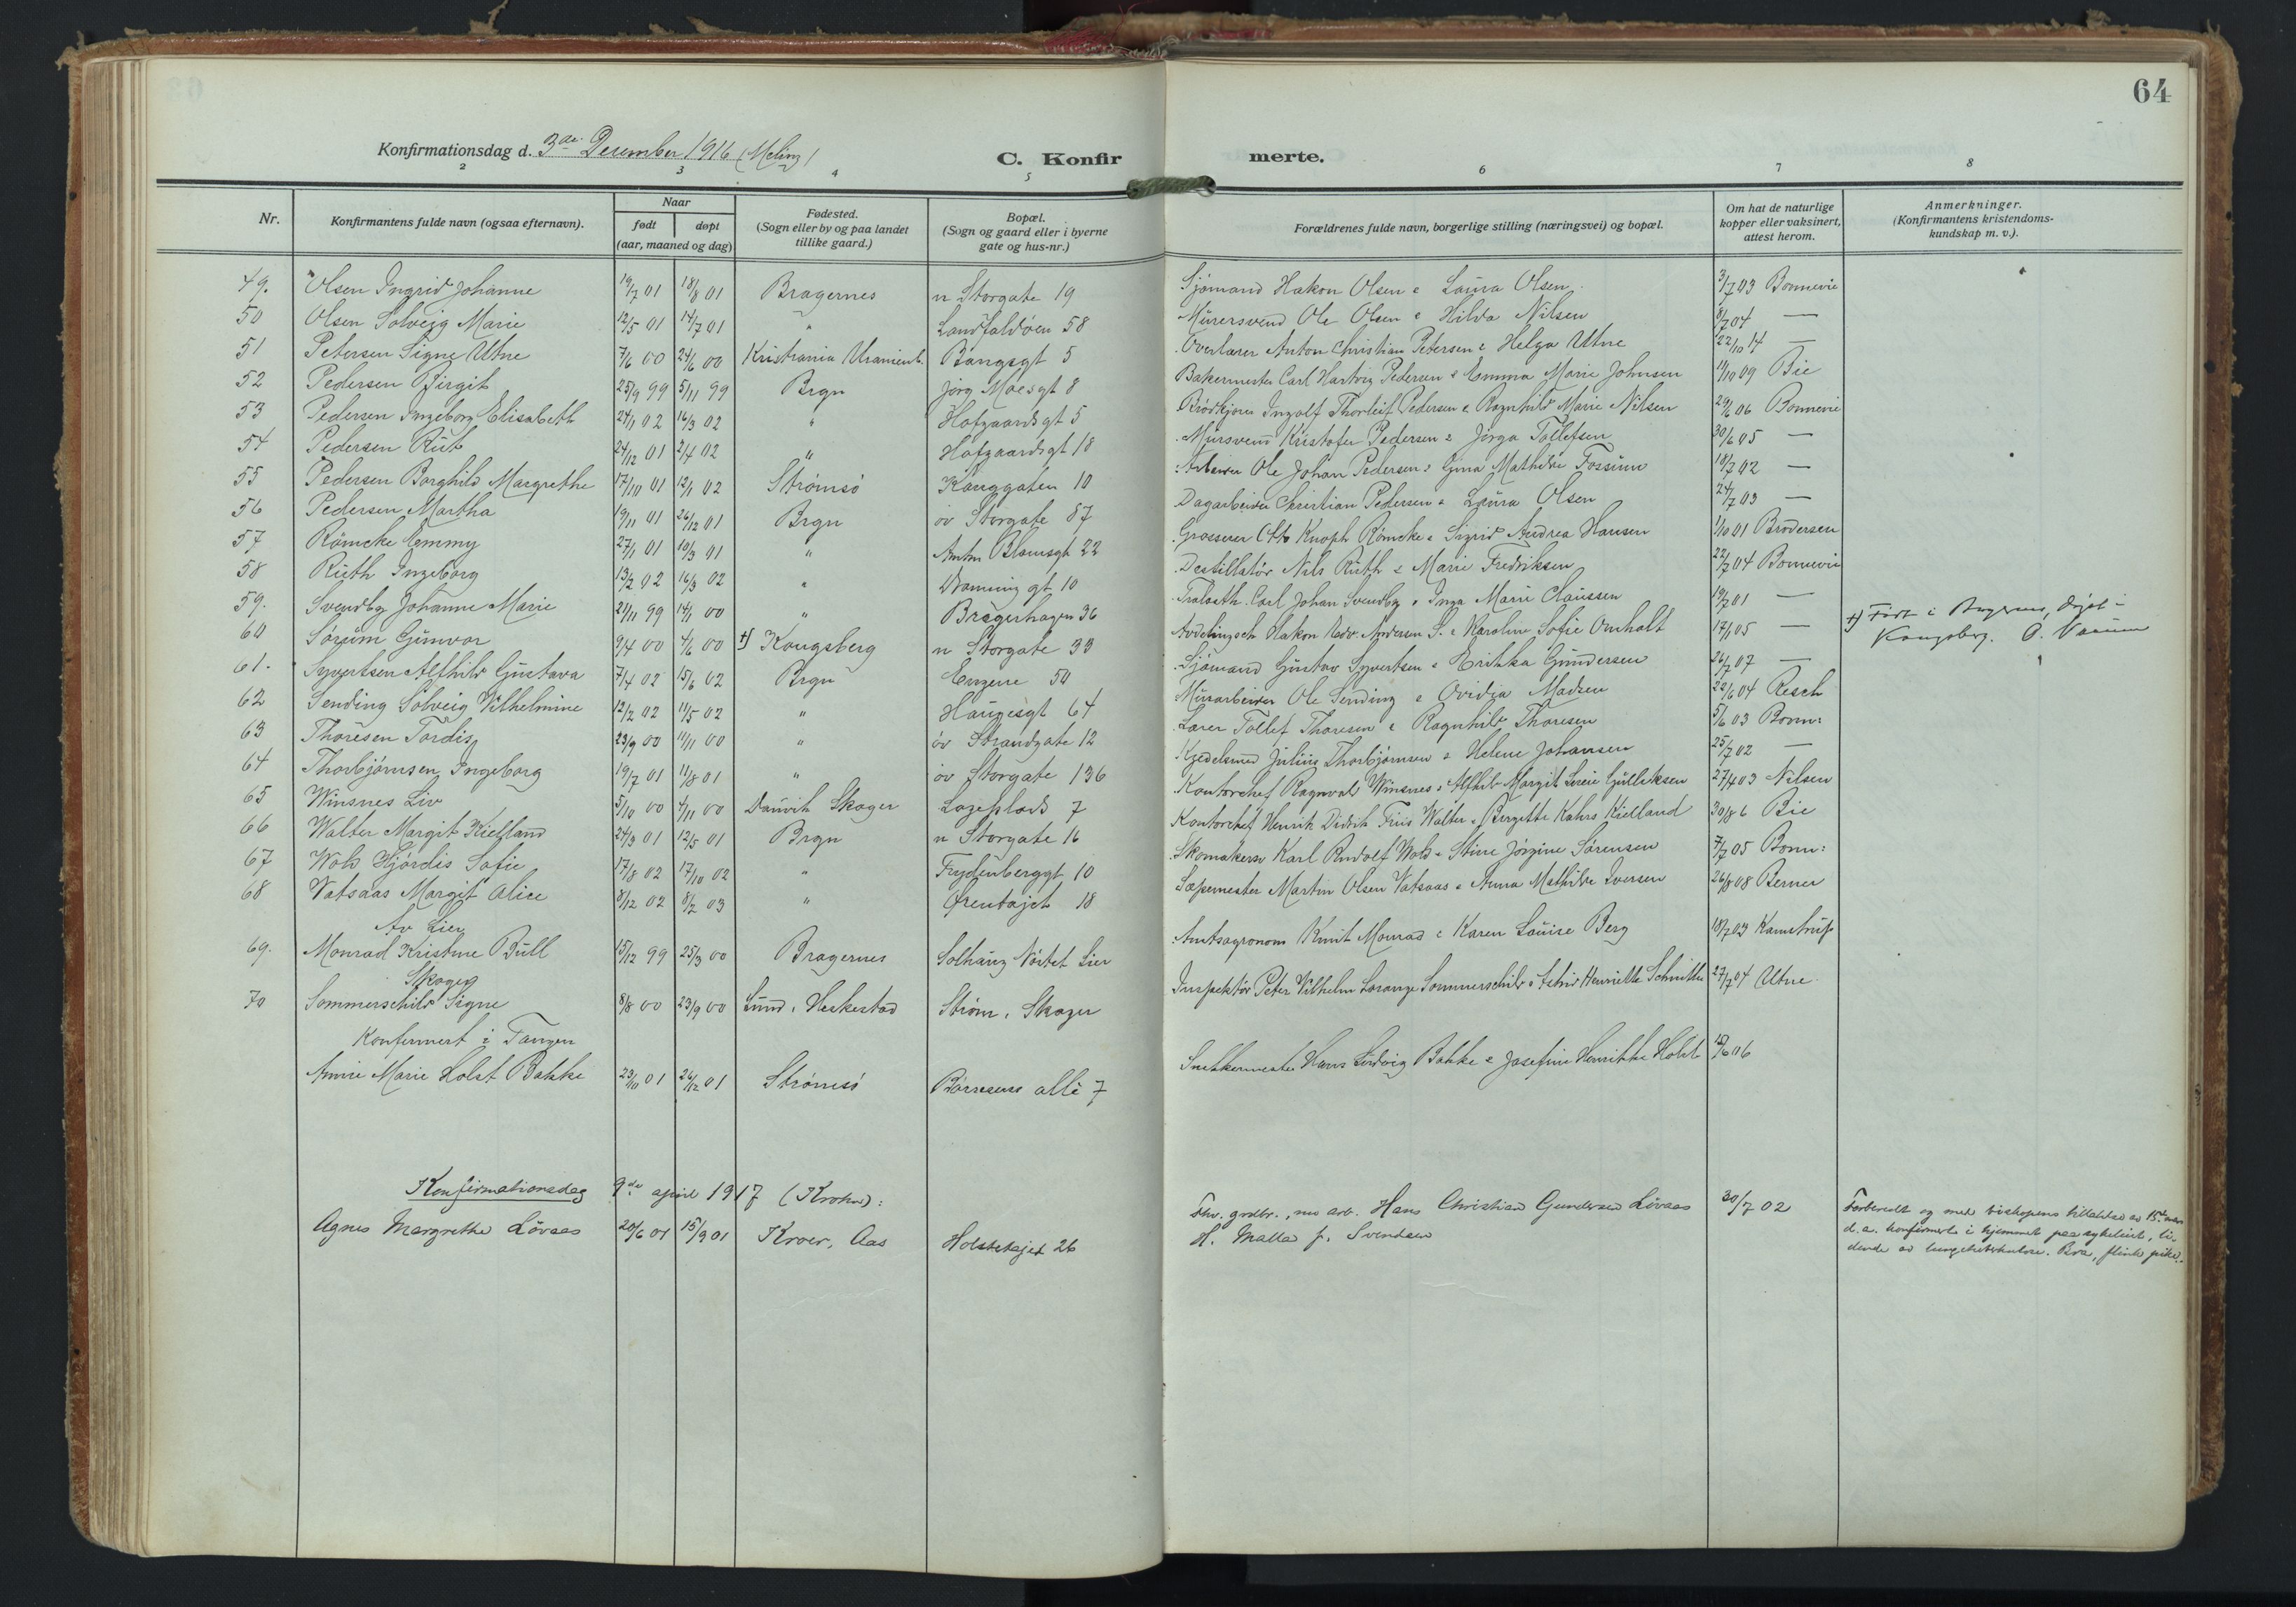 64
Konfirmationsdag d. 3de Desember 1916 (Meling)
C. Konfirmerte.
2 3 4 5 6 7 8
Nr. Konfirmantens fulde navn (ogsaa efternavn). Naar født døpt (aar, maaned og dag) Fødested. (Sogn eller by og paa landet tillike gaard.) Bopæl. (Sogn og gaard eller i byerne gate og hus-nr.) Forældrenes fulde navn, borgerlige stilling (næringsvei) og bopæl. Om hat de naturlige kopper eller vaksinert, attest herom. Anmerkninger. (Konfirmantens kristendoms-kundskap m. v.).
49. Olsen Ingrid Johanne 19/7 01 18/8 01 Bragernes n Storgate 19 Sjømand Hakon Olsen & Laura Olsen 3/7 03 Bonnevie
50 Olsen Solveig Marie 12/5 01 14/7 01 " Landfaldøen 58 Murersvend Ole Olsen & Hilda Nilsen 8/7 04 —
51 Petersen Signe Utne 7/6 00 24/6 00 Kristiania Uranienb. Bangsgt 5 Overlærer Anton Christian Petersen & Helga Utne 22/10 14 —
52 Pedersen Birgit 25/9 99 5/11 99 Brgn Jørg Moesgt 8 Bakermester Carl Hartvig Pedersen & Emma Marie Johnsen 11/10 09 Bie
53 Pedersen Ingeborg Elisabeth 24/1 02 16/3 02 " Hofgaardsgt 5 Brødkjører Ingolf Thorleif Pedersen & Ragnhild Marie Nilsen 29/6 06 Bonnevie
54 Pedersen Rut 24/12 01 2/4 02 " Hofgaardsgt 18 Mursvend Kristofer Pedersen & Jørga Tollefsen 30/6 05 —
55 Pedersen Borghild Margrethe 17/10 01 12/1 02 Strømsø Konggaten 10 Arbeider Ole Johan Pedersen & Gina Mathilde Fossum 18/7 02 —
56 Pedersen Martha 19/11 01 26/12 01 Brgn øv Storgate 87 Dagarbeider Christian Pedersen & Laura Olsen 24/7 03 —
57 Römcke Emmy 27/1 01 10/3 01 " Amtm Blomsgt 22 Grosserer Otto Knoph Römcke & Sigrid Andrea Hansen 1/10 01 Brodersen
58 Ruth Ingeborg 13/2 02 16/3 02 " Dronning gt 10 Destillatør Nils Ruth & Marie Fredriksen 22/7 04 Bonnevie
59. Svendby Johanne Marie 21/11 99 14/1 00 " Bragerhagen 36 Carl Johan Svendby & Inga Marie Claussen 19/7 01 —
60 Sørum Gunvor 9/4 00 4/6 00 +) Kongsberg n Storgate 33 Avdelingsch Hakon Edv. Andersen S. & Karoline Sofie Omholt 17/1 05 — +) Født i Bragernes, døpt i Kongsberg.
61. Syvertsen Alfhild Gustava 7/4 02 15/6 02 Brgn Engene 50 Sjømand Gustav Syvertsen & Erikka Gundersen 26/7 07 —
62 Sending Solveig Vilhelmine 12/2 02 11/5 02 " Haugesgt 64 Murarbeider Ole Sending & Ovidia Madsen 22/6 04 Resch
63 Thoresen Tordis 23/9 00 11/11 00 " øv Strandgate 12 Lærer Tollef Thoresen & Ragnhild Thoresen 5/6 03 Bonn:
64 Thorbjørnsen Ingeborg 19/7 01 11/8 01 " øv Storgate 136 Kjedelsmed Julius Thorbjørnsen & Helene Johansen 25/7 02 —
65 Winsnes Liv 5/10 00 4/11 00 Danvik Skoger Lagepladsen 7 Kontorchef Ragnvald Winsnes & Alfhild Margit Lexie Gulliksen 27/4 03 Nilsen
66 Walter Margit Kielland 24/3 01 12/5 01 Brgn n Storgate 16 Kontorchef Henrik Didrik Friis Walter & Birgitte Kahrs Kielland 30/8 6 Bie
67 Wold Hjørdis Sofie 17/8 02 17/10 02 " Frydenberggt 10 Skomakersv Karl Rudolf Wold & Stine Jørgine Sørensen 7/7 05 Bonn:
68 Vatsaas Margit Alice 8/12 02 8/2 03 " Ørentøjet 18 Sæpemester Martin Olsen Vatsaas & Anna Mathilde Iversen 26/8 08 Berner
Av Lier
69. Monrad Kristine Bull 15/12 99 25/3 00 Bragernes Solhaug Nøstet Lier Amtsagronom Knut Monrad & Karen Louise Berg 18/7 03 Kamstrup
Skoger
70 Sommerschild Signe 8/8 00 23/9 00 Lund, Heskestad Strøm, Skoger Inspektør Peter Vilhelm Lorange Sommerschild & Astrid Henriette Schnitler 27/7 04 Utne
Konfirmert i Tangen
Annie Marie Holst Bakke 23/10 01 26/12 01 Strømsø Børresens allé 7 Snekkermester Hans Ludvig Bakke & Josefine Henrikke Holst 12/6 06
Konfirmationsdag 9de april 1917 (Krohn):
Agnes Margrethe Løvaas 20/6 01 15/9 01 Kroer, Aas Holstetøjet 26 Fhv. grdbr., nu arb. Hans Christian Gundersen Løvaas 30/7 02 Forberedt og med biskopens tillatelse av 15de mars
H. Malla f. Svendsen d. a. konfirmert i hjemmet paa sykeleiet, li-
dende av lungetuberkulose. Bra, flink pike.